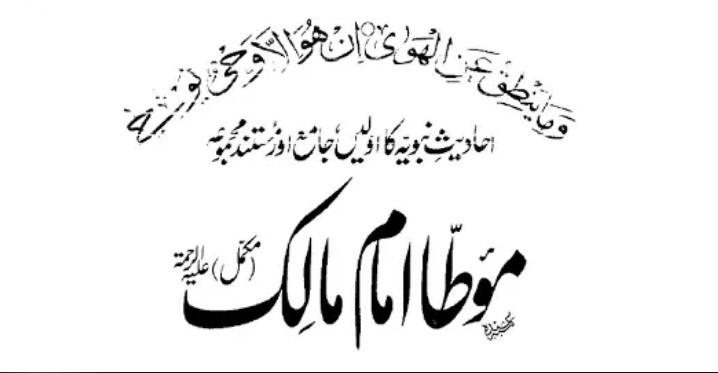 وَمَا يَنْطِقُ عَنِ الْهَوٰى اِنْ هُوَ اِلَّا وَحْىٌ يُّوحٰى
احادیثِ نبویہ کا اولیں، جامع اور مُستند مجموعہ
مؤطّا امام مالک علیہ الرحمۃ (مکمّل)